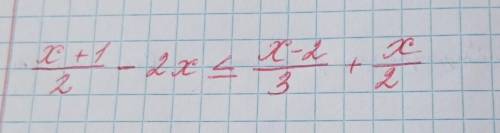 \frac{x+1}{2} - 2x \leq \frac{x-2}{3} + \frac{x}{2}